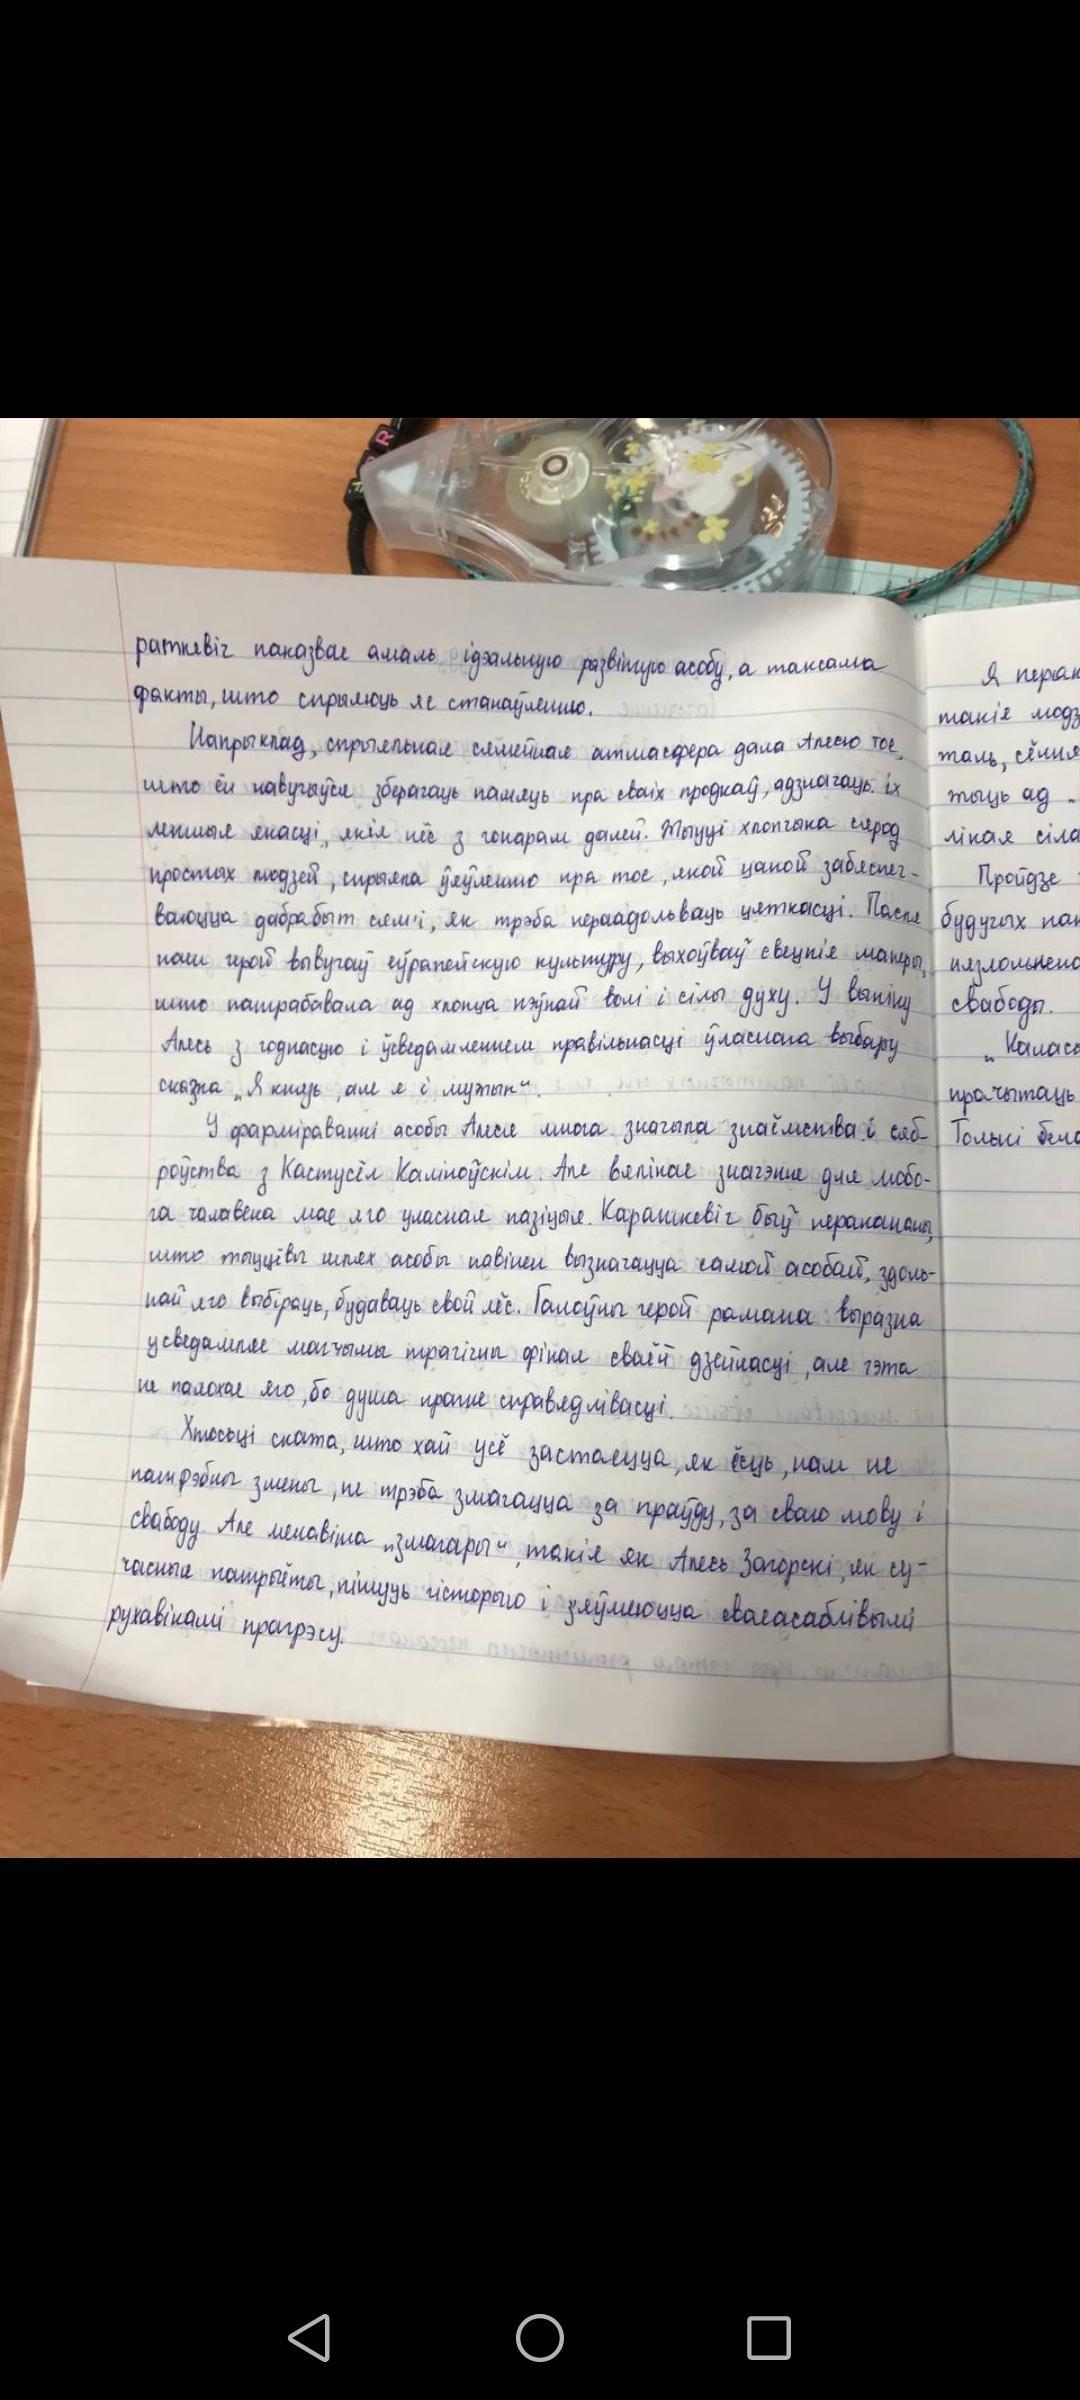 раткевіч паказвае амаль ідэальную развітую асобу, а таксама
факты, што спрыяюць яе станаўленню.
Напрыклад, спрыяльная сямейная атмасфера дала Алесю тое,
што ён навучыўся зберагаць памяць пра сваіх продкаў, адзначаць іх
лепшыя якасці, якія нёс з гонарам далей. Жыцці хлопчыка сярод
простых людзей, спрыяла ўяўленню пра тое, якой цаной забяспеч-
ваюцца дабрабыт сям'і, як трэба пераадольваць цяжкасці. Пасля
наш герой вывучаў еўрапейскую культуру, выхоўваў свецкія манеры,
што патрабавала ад хлопца пэўнай волі і сілы духу. У выніку
Алесь з годнасцю і ўсведамленнем правільнасці ўласнага выбару
сказа „Я князь, але я і мужык“.
У фарміраванні асобы Алеся многа значыла знаёмства і сяб-
роўства з Кастусём Каліноўскім. Але вялікае значэнне для любо-
га чалавека мае яго уласная пазіцыя. Караткевіч быў перакананы,
што жыццёвы шлях асобы павінен вызначацца самой асобай, здоль-
най яго выбіраць, будаваць свой лёс. Галоўны герой рамана выразна
усведамляе магчымы трагічны фінал сваёй дзейнасці, але гэта
не палохае яго, бо душа прагне справядлівасці.
Хтосьці скажа, што хай усё застаецца, як ёсць, нам не
патрэбны змены, не трэба змагацца за праўду, за сваю мову і
свабоду. Але менавіта „змагары“, такія як Алесь Загорскі, як су-
часныя патрыёты, пішуць гісторыю і з'яўляюцца своеасаблівымі
рухавікамі прагрэсу.
Я перак
такія людз
таль, сёння
жыць ад „
лікая сіла
Пройдзе
будучых пак
нязломнена
свабоды.
„Каласы
прачытаць
Толькі бела